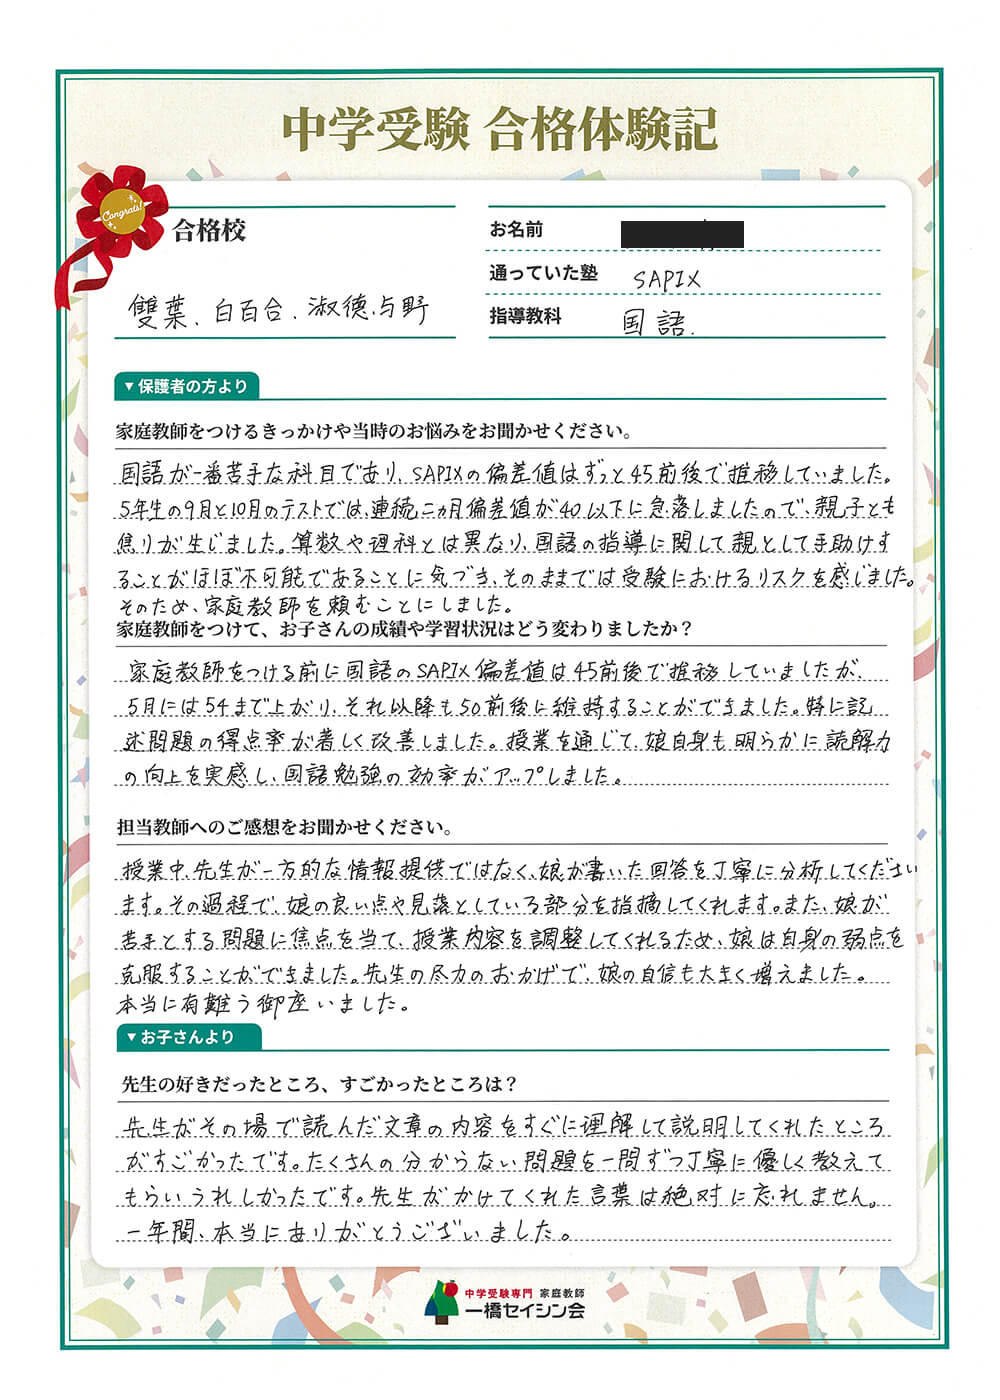 中学受験 合格体験記
Congrats!
合格校
雙葉、白百合、淑徳与野
お名前
通っていた塾 SAPIX
指導教科 国語.
▼保護者の方より
家庭教師をつけるきっかけや当時のお悩みをお聞かせください。
国語が一番苦手な科目であり、SAPIXの偏差値はずっと45前後で推移していました。
5年生の9月と10月のテストでは、連続二ヵ月偏差値が40以下に急落しましたので、親子とも
焦りが生じました。算数や理科とは異なり、国語の指導に関して親として手助けす
ることがほぼ不可能であることに気づき、そのままでは受験におけるリスクを感じました。
そのため、家庭教師を頼むことにしました。
家庭教師をつけて、お子さんの成績や学習状況はどう変わりましたか？
家庭教師をつける前に国語のSAPIX偏差値は45前後で推移していましたが、
5月には54まで上がり、それ以降も50前後に維持することができました。特に記
述問題の得点率が著しく改善しました。授業を通じて、娘自身も明らかに読解力
の向上を実感し、国語勉強の効率がアップしました。
担当教師へのご感想をお聞かせください。
授業中、先生が一方的な情報提供ではなく、娘が書いた回答を丁寧に分析してください
ます。その過程で、娘の良い点や見落としている部分を指摘してくれます。また、娘が
苦手とする問題に焦点を当て、授業内容を調整してくれるため、娘は自身の弱点を
克服することができました。先生の尽力のおかげで、娘の自信も大きく増えました。
本当に有難う御座いました。
▼お子さんより
先生の好きだったところ、すごかったところは？
先生がその場で読んだ文章の内容をすぐに理解して説明してくれたところ
がすごかったです。たくさんの分からない問題を一問ずつ丁寧に優しく教えて
もらいうれしかったです。先生がかけてくれた言葉は絶対に忘れません。
一年間、本当にありがとうございました。
中学受験専門 家庭教師
一橋セイシン会